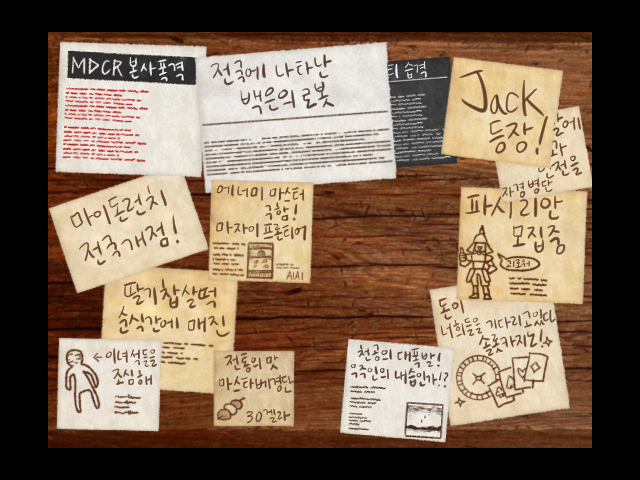 MDCR 본사폭격
전국에 나타난
백은의 로봇
습격
Jack
등장!
자경병단
마이도런치
전국개점!
에너미 마스터
극함!
마자이 프론티어
AIAI
파시리안
모집중
괴로워
딸기찹쌀떡
순식간에 매진
돈이
너희들을 기다리고있다
슬롯카지노!
←이녀석들을
조심해
전통의맛
마스타베경단
30겔라
천공의 대폭발!
우주인의 내습인가!?